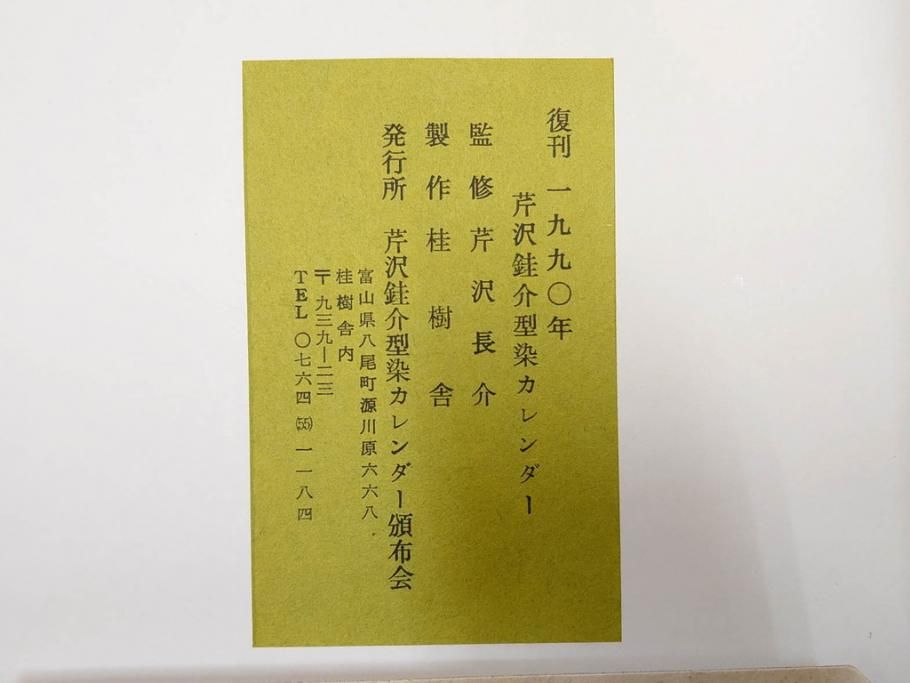 復刊 一九九〇年
芹沢銈介型染カレンダー
監修 芹沢長介
製作 桂樹舎
発行所 芹沢銈介型染カレンダー頒布会
富山県八尾町源川原六六八
桂樹舎内
〒九三九―二三
TEL 〇七六四(55)一一八四